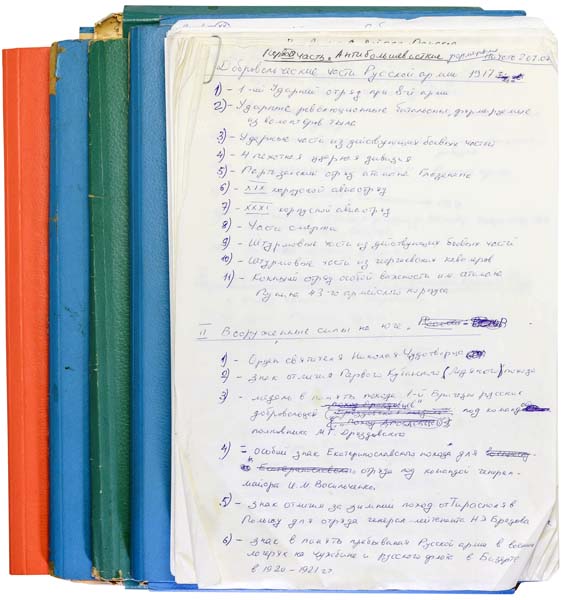 часть, Антибольшевистские
Добровольческие части Русской армии 1917
1) - 1-ый Ударный отряд при 8-й арми
2) - Ударные революционные батальоны, формируемые
из волонтёров тыла
3) - Ударные части из действующих боевых частей
4) - Пехотная ударная дивизия
5) - Партизанский отряд атамана
6) - XIX корпусной авиаотряд
7) - XXXI корпусной авиаотряд
8) - Части смерти
9) - Штурмовые части из действующих боевых частей
10) - Штурмовые части из георгиевских кавалеров
11) - Конный отряд особой важности им. атамана
43-го армейского корпуса
II Вооруженные силы на юге
1) - Орден святителя Николая Чудотворца
2) - Знак отличия Первого Кубанского (Ледяного) похода
3) - медаль в память похода 1-й Бригады русских
добровольцев под команд
полковника М.Г. Дроздовского
4) - особый знак Екатеринославского похода для
отряда под командой генерал-
майора И.М. Васильченко.
5) - Знак отличия за зимний поход от Тирасполя в
Польшу для отряда генерал-лейтенанта Н.Э. Бредова
6) - знак в память пребывания Русской армии в военных
лагерях на чужбине и русского флота в Бизерте
в 1920 - 1921 гг